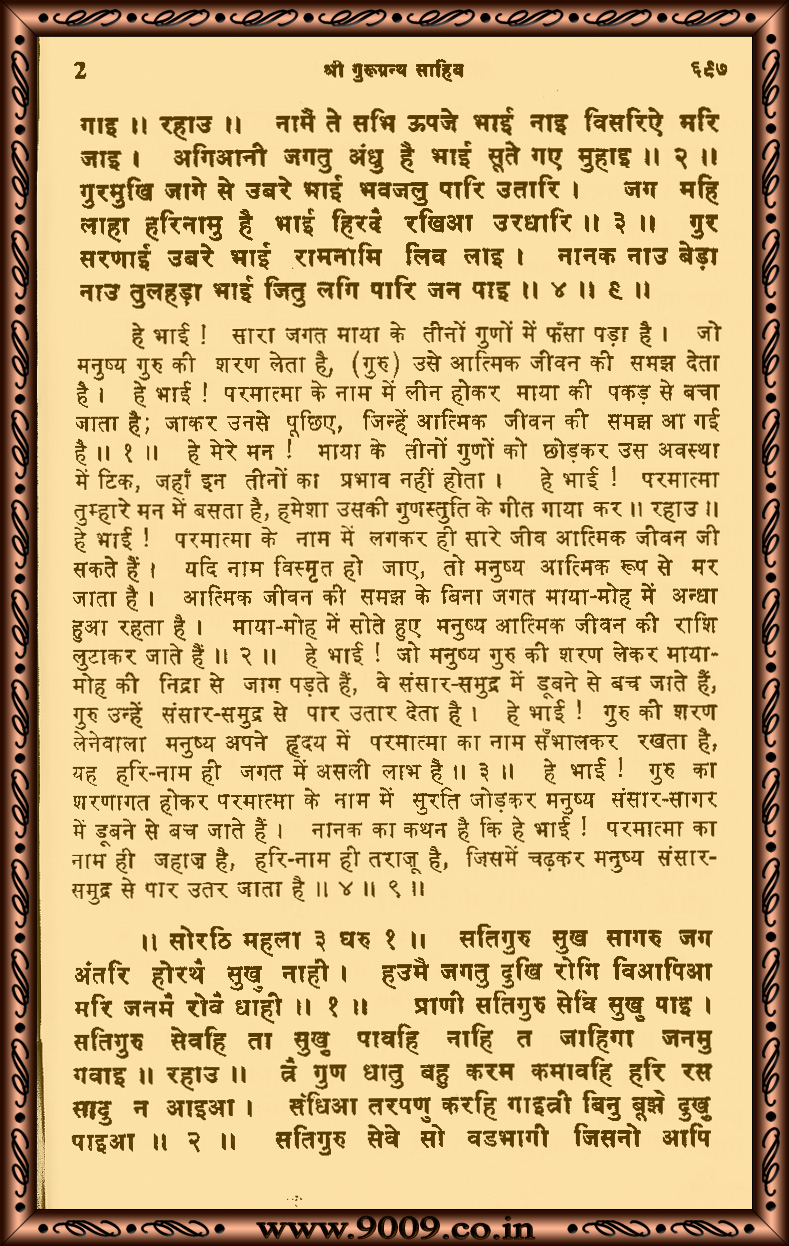 2 श्री गुरूग्रन्थ साहिब ६९७
गाइ ॥ रहाउ ॥ नामै ते सभि ऊपजे भाई नाइ विसरिऐ मरि
जाइ । अगिआनी जगतु अंधु है भाई सूते गए मुहाइ ॥ २ ॥
गुरमुखि जागे से उबरे भाई भवजलु पारि उतारि । जग महि
लाहा हरिनामु है भाई हिरदै रखिआ उरधारि ॥ ३ ॥ गुर
सरणाई उबरे भाई रामनामि लिव लाइ । नानक नाउ बेड़ा
नाउ तुलहड़ा भाई जितु लगि पारि जन पाइ ॥ ४ ॥ ९ ॥
हे भाई ! सारा जगत माया के तीनों गुणों में फँसा पड़ा है । जो
मनुष्य गुरु की शरण लेता है, (गुरु) उसे आत्मिक जीवन की समझ देता
है । हे भाई ! परमात्मा के नाम में लीन होकर माया की पकड़ से बचा
जाता है; जाकर उनसे पूछिए, जिन्हें आत्मिक जीवन की समझ आ गई
है ॥ १ ॥ हे मेरे मन ! माया के तीनों गुणों को छोड़कर उस अवस्था
में टिक, जहाँ इन तीनों का प्रभाव नहीं होता । हे भाई ! परमात्मा
तुम्हारे मन में बसता है, हमेशा उसकी गुणस्तुति के गीत गाया कर ॥ रहाउ ॥
हे भाई ! परमात्मा के नाम में लगकर ही सारे जीव आत्मिक जीवन जी
सकते हैं । यदि नाम विस्मृत हो जाए, तो मनुष्य आत्मिक रूप से मर
जाता है । आत्मिक जीवन की समझ के बिना जगत माया-मोह में अन्धा
हुआ रहता है । माया-मोह में सोते हुए मनुष्य आत्मिक जीवन की राशि
लुटाकर जाते हैं ॥ २ ॥ हे भाई ! जो मनुष्य गुरु की शरण लेकर माया-
मोह की निद्रा से जाग पड़ते हैं, वे संसार-समुद्र में डूबने से बच जाते हैं,
गुरु उन्हें संसार-समुद्र से पार उतार देता है । हे भाई ! गुरु की शरण
लेनेवाला मनुष्य अपने हृदय में परमात्मा का नाम सँभालकर रखता है,
यह हरि-नाम ही जगत में असली लाभ है ॥ ३ ॥ हे भाई ! गुरु का
शरणागत होकर परमात्मा के नाम में सुरति जोड़कर मनुष्य संसार-सागर
में डूबने से बच जाते हैं । नानक का कथन है कि हे भाई ! परमात्मा का
नाम ही जहाज़ है, हरि-नाम ही तराज़ू है, जिसमें चढ़कर मनुष्य संसार-
समुद्र से पार उतर जाता है ॥ ४ ॥ ९ ॥
॥ सोरठि महला ३ घरु १ ॥ सतिगुरु सुख सागरु जग
अंतरि होरथै सुखु नाही । हउमै जगतु दुखि रोगि विआपिआ
मरि जनमै रोवै धाही ॥ १ ॥ प्राणी सतिगुरु सेवि सुखु पाइ ।
सतिगुरु सेवहि ता सुखु पावहि नाहि त जाहिगा जनमु
गवाइ ॥ रहाउ ॥ त्रै गुण धातु बहु करम कमावहि हरि रस
सादु न आइआ । संधिआ तरपणु करहि गाइत्री बिनु बूझे दुखु
पाइआ ॥ २ ॥ सतिगुरु सेवे सो वडभागी जिसनो आपि
www.9009.co.in